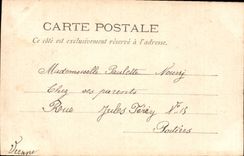 CARTE POSTALE
Ce côté est exclusivement réservé à l'adresse.
Mademoiselle Paulette
Chez ses parents
Rue Jules Ferry N° 15
Poitiers
Vienne